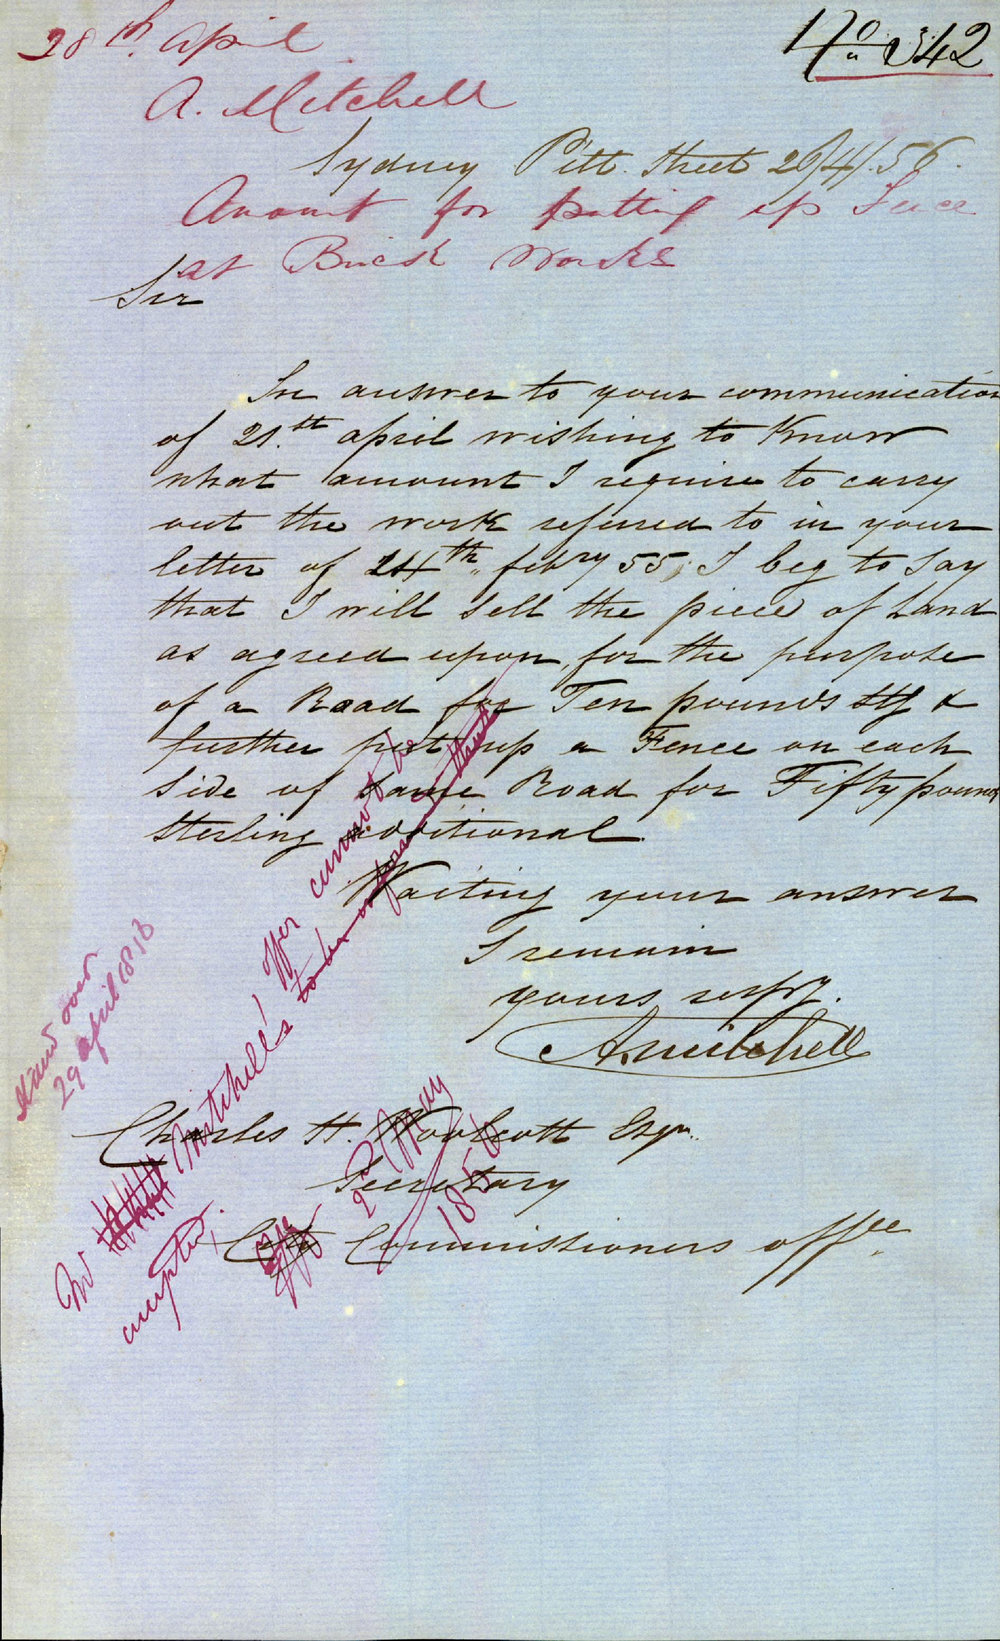 28th. April
No 342
A. Mitchell
Sydney Pitt. Street 26/4/.56.
Amount for putting up Fence
at Brick Works
Sir
In answer to your communication
of 21.th april wishing to Know
what amount I require to carry
out the work referred to in your
letter of 24th febry 55, I beg to Say
that I will Sell the piece of Land
as agreed upon, for the purpose
of a Road for Ten pounds Stg &
further put up a Fence on each
Side of Same Road for Fifty pounds
Sterling additional.
Waiting your answer
I remain
yours respy.
A. Mitchell
Charles H. Woolcott Esqr.
Secretary
City Commissioners offce
29 April 18
Mr Mitchell's offer cannot be
accepted.
2 May
1856